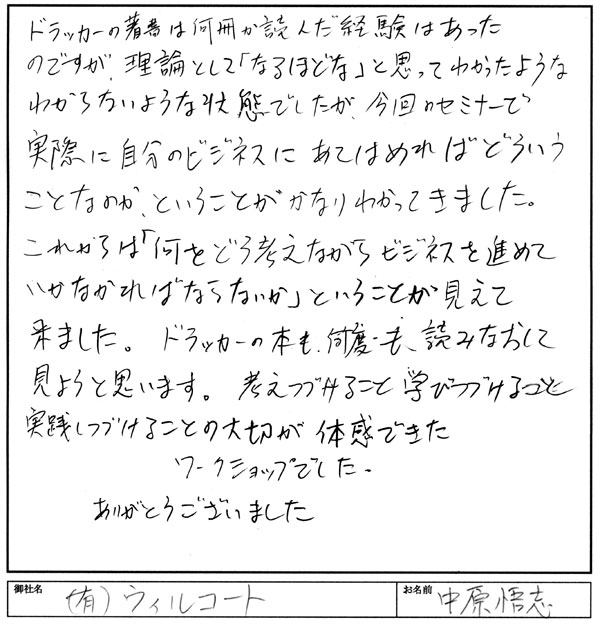 ドラッカーの著書は何冊か読んだ経験はあった
のですが、理論として「なるほどな」と思ってわかったような
わからないような状態でしたが、今回のセミナーで
実際に自分のビジネスにあてはめればどういう
ことなのか、ということがかなりわかってきました。
これからは「何をどう考えながらビジネスを進めて
いかなければならないか」ということが見えて
来ました。ドラッカーの本も、何度も、読みなおして
見ようと思います。考えつづけること学びつづけること
実践しつづけることの大切が体感できた
ワークショップでした。
ありがとうございました
御社名 (有)ウィルコート お名前 中原悟志